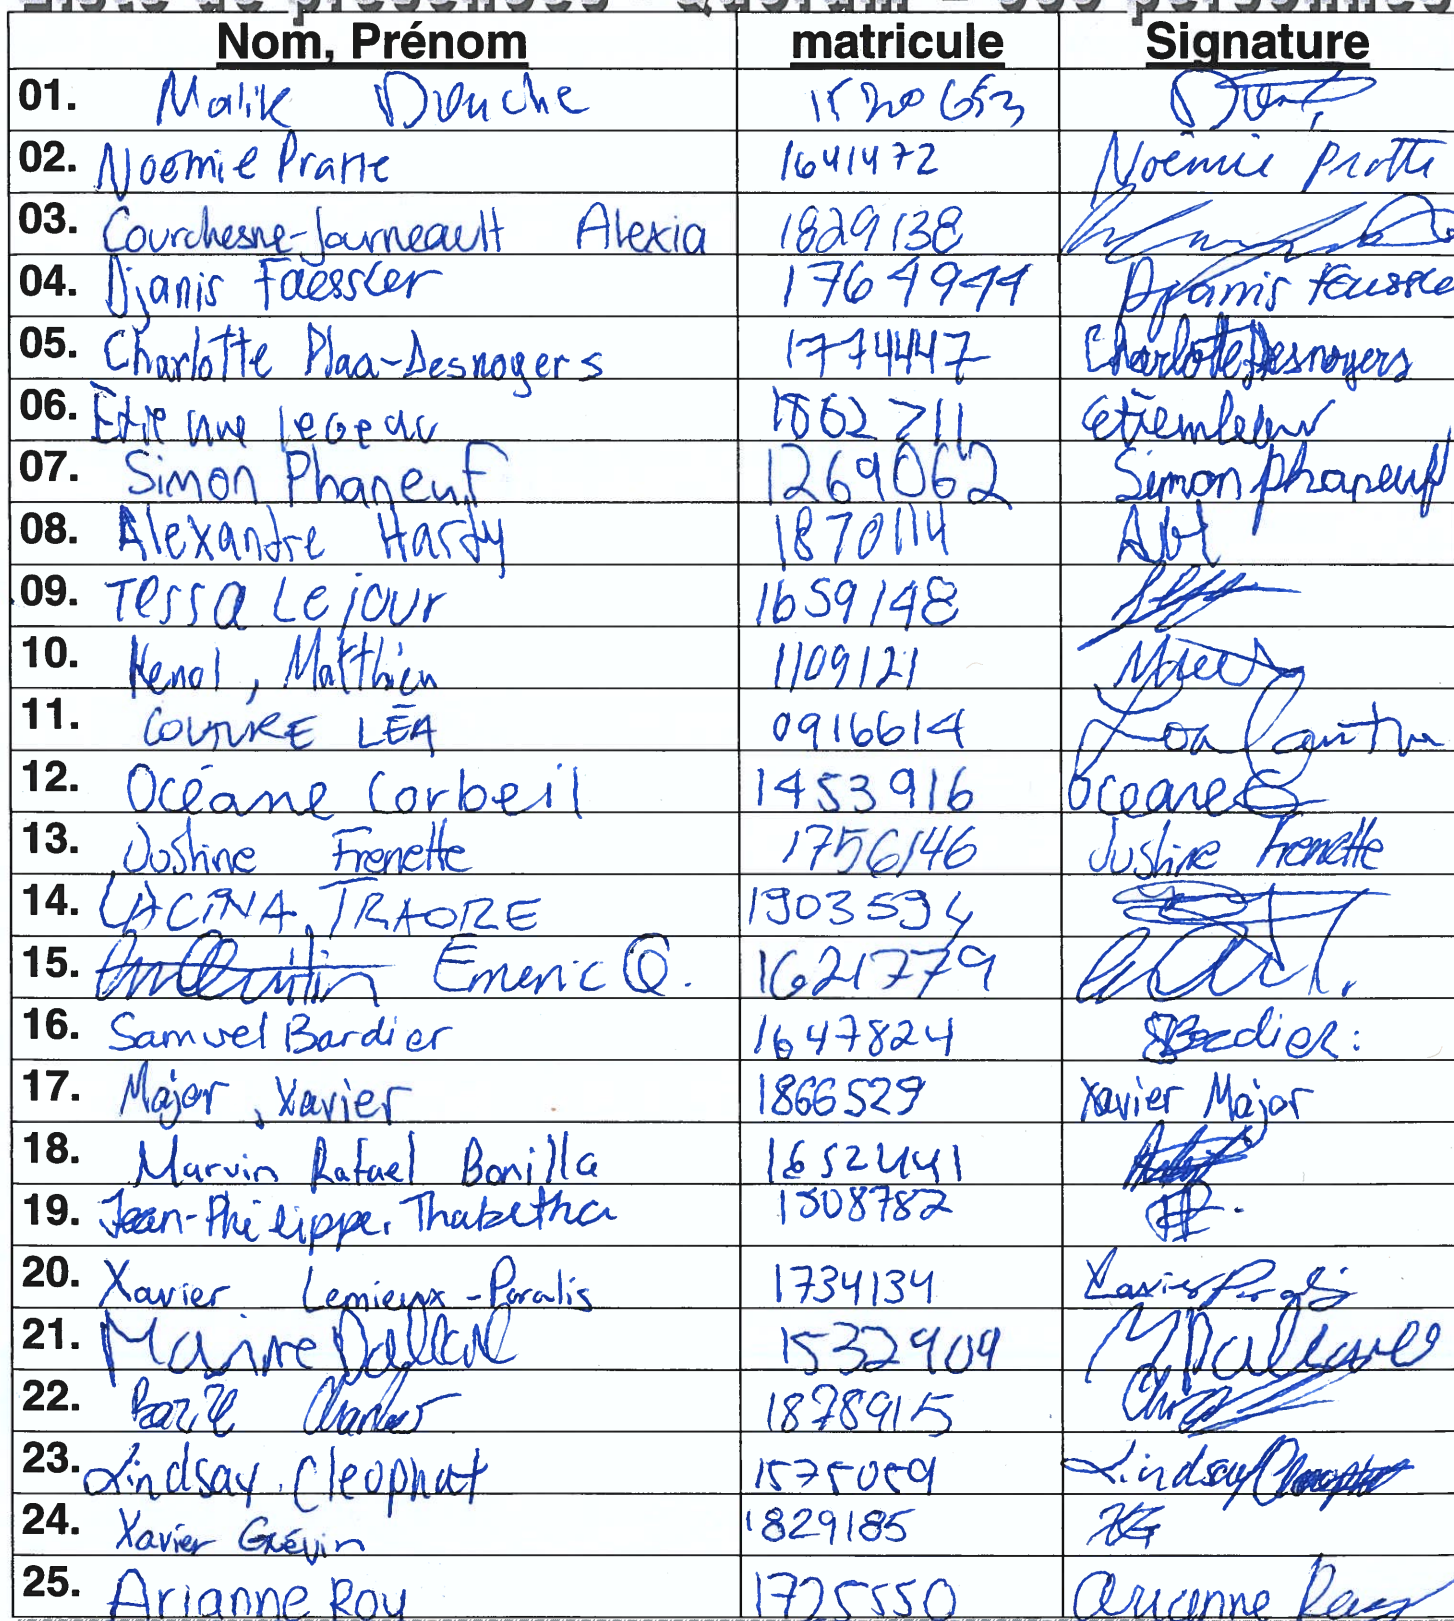 Liste de présences - Quorum = personnes
Nom, Prénom matricule Signature
01. Malik
02. Noemie Pratte 1641472 Noémie Pratte
03. Courchesne-Journeault Alexia 1829138
04. Djanis Faessler 1764944 Djanis
05. Charlotte Plaa-Desnoyers 1774447 Charlotte Desnoyers
06. Étienne 1862711
07. Simon Phaneuf 1269062 Simon Phaneuf
08. Alexandre Hardy 1870114 AH
09. Tessa Lejour 1659148
10. Matthieu 1109121
11. COUTURE LÉA 0916614 Léa Coutu
12. Océane Corbeil 1453916 Oceane
13. Justine Frenette 1756146 Justine Frenette
14. LACINA TRAORE 1903594
15. Emeric Q. 1621779
16. Samuel Bardier 1647824
17. Major, Xavier 1866529 Xavier Major
18. Marvin Rafael Bonilla 1652441
19. Jean-Philippe. Thabetha 1808782
20. Xavier Lemieux-Paralis 1734134
21. 1532909
22. 1878915
23. Lindsay Cleophat 1575059 Lindsay
24. Xavier Grévin 1829185 XG
25. Arianne Roy 1725550 Arianne Roy